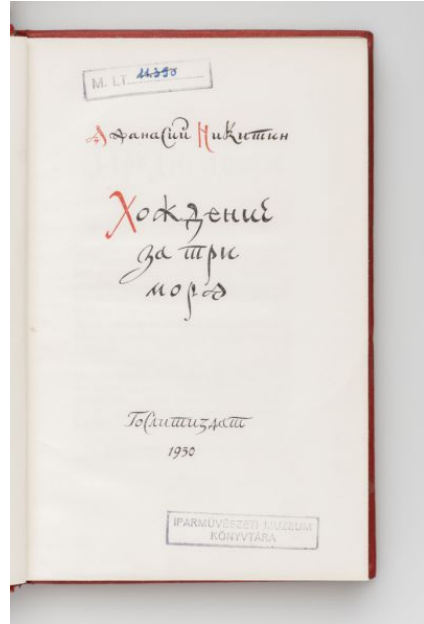 M. LT. 11.390
Афанасий Никитин
Хождение
за три
моря
Гослитиздат
1950
IPARMŰVÉSZETI MUZEUM
KÖNYVTÁRA